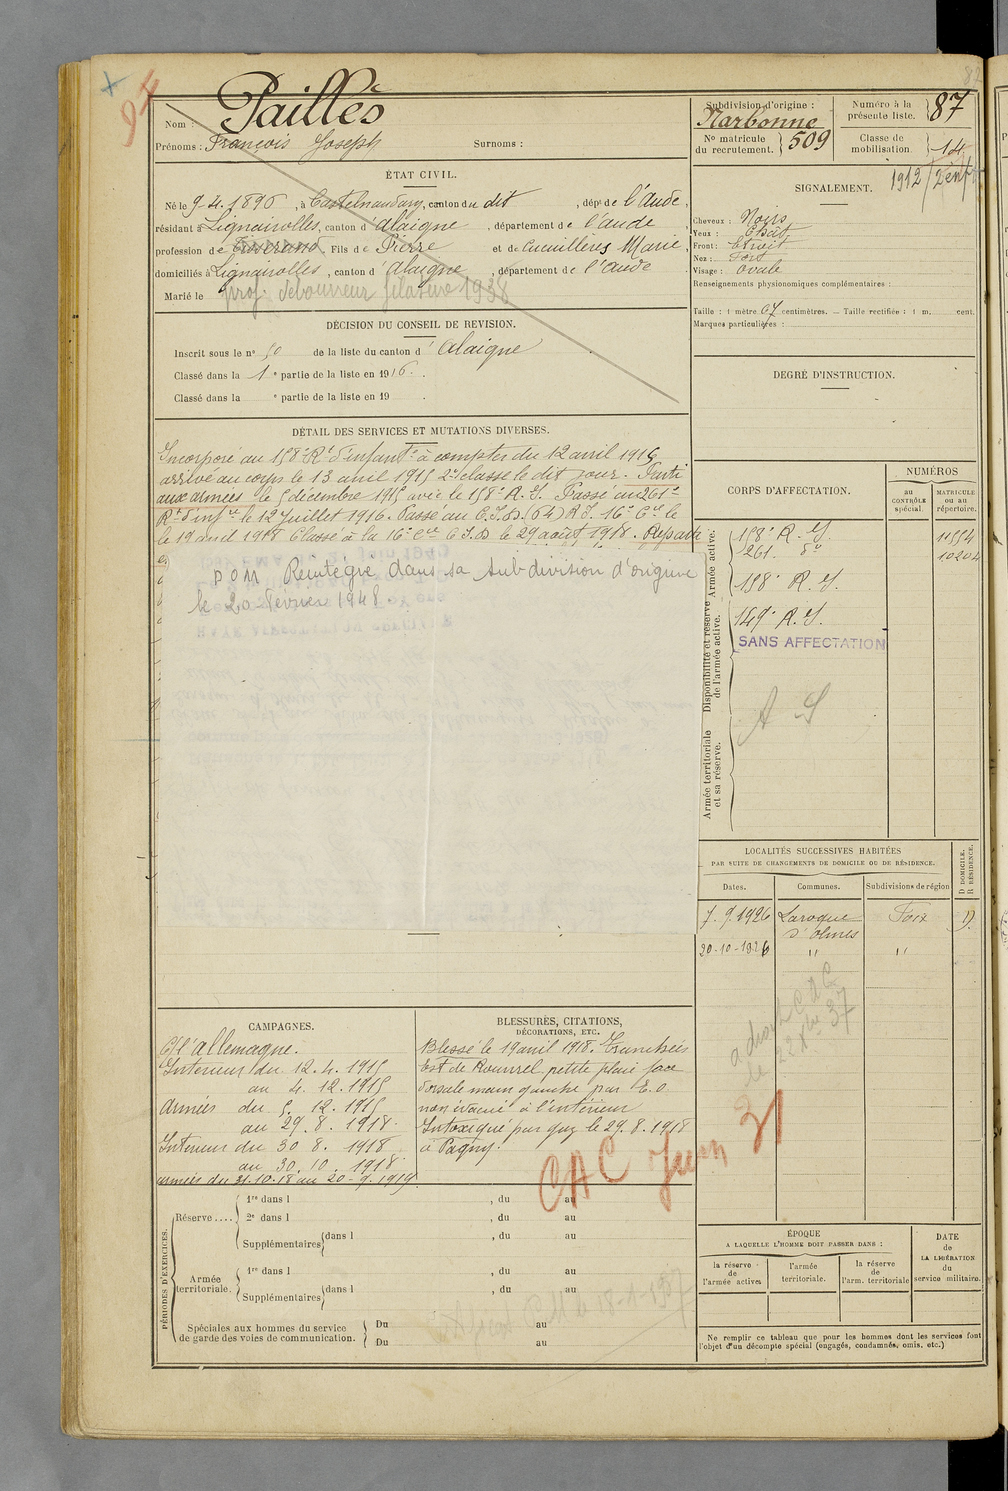 94
87
Nom : Paillès
Prénoms : François Joseph Surnoms :
ÉTAT CIVIL.
Né le 9.4.1896, à Castelnaudary, canton du dit, dépt de l'Aude,
résidant à Lignairolles, canton d'Alaigne, département de l'aude
profession de Tisserand, Fils de Pierre et de Cucuillères Marie,
domiciliés à Lignairolles, canton d'Alaigne, département de l'aude
Marié le
prof. débourreur filature 1938
DÉCISION DU CONSEIL DE REVISION.
Inscrit sous le n° 50 de la liste du canton d'Alaigne
Classé dans la 1e partie de la liste en 1916.
Classé dans la e partie de la liste en 19 .
Subdivision d'origine :
Narbonne
N° matricule du recrutement. 509
Numéro à la présente liste. 87
Classe de mobilisation. 14
1912 / 2 enfts
SIGNALEMENT.
Cheveux : Noirs
Yeux : Chât
Front : Etroit
Nez : Fort
Visage : Ovale
Renseignements physionomiques complémentaires :
Taille : 1 mètre 67 centimètres. — Taille rectifiée : 1 m. cent.
Marques particulières :
DEGRÉ D'INSTRUCTION.
DÉTAIL DES SERVICES ET MUTATIONS DIVERSES.
Incorporé au 158e Rt d'infantie à compter du 12 avril 1915
arrivé au corps le 13 avril 1915 2e classe le dit jour. Parti
aux armées le 5 décembre 1915 avec le 158e R.I. Passé au 261e
Rt d'infie le 12 Juillet 1916. Passé au C.I.D. (64) R.I. 16e Cie le
le 19 avril 1918 Classé à la 16e Cie C.I.D le 29 août 1918. Reparti
DOM Réintégré dans sa subdivision d'origine
le 20 Février 1948
CORPS D'AFFECTATION.
NUMÉROS
au CONTRÔLE spécial.
MATRICULE ou au répertoire.
Armée active.
158e R.I. 11554
261. do 10204
158e R.I.
Disponibilité et réserve de l'armée active.
149e R.I.
SANS AFFECTATION
Armée territoriale et sa réserve.
A S
LOCALITÉS SUCCESSIVES HABITÉES
PAR SUITE DE CHANGEMENTS DE DOMICILE OU DE RÉSIDENCE.
Dates. Communes. Subdivisions de région D DOMICILE. R RÉSIDENCE.
7.9.1926 Laroque d'Olmes Foix D.
20-10-1926 " "
CAMPAGNES.
C/ l'allemagne.
Intérieur du 12.4.1915
au 4.12.1915
Armées du 5.12.1915
au 29.8.1918.
Intérieur du 30 8. 1918
au 30.10.1918.
armées du 31.10.18 au 20-9.1919
BLESSURES, CITATIONS,
DÉCORATIONS, ETC.
Blessé le 19 avril 1918. Tranchées
Est de Rouvrel petite plaie face
dorsale main gauche par E.O
non évacué à l'intérieur
Intoxiqué par gaz le 29.8.1918
à Pagny.
CAC Juin 31
PÉRIODES D'EXERCICES.
Réserve ....
1re dans l , du au
2e dans l , du au
Supplémentaires dans l , du au
Armée territoriale.
1re dans l , du au
Supplémentaires dans l , du au
Spéciales aux hommes du service
de garde des voies de communication.
Du au
Du au
ÉPOQUE
A LAQUELLE L'HOMME DOIT PASSER DANS :
la réserve de l'armée active
l'armée territoriale.
la réserve de l'arm. territoriale
DATE de LA LIBÉRATION du service militaire.
Ne remplir ce tableau que pour les hommes dont les services font
l'objet d'un décompte spécial (engagés, condamnés, omis, etc.)